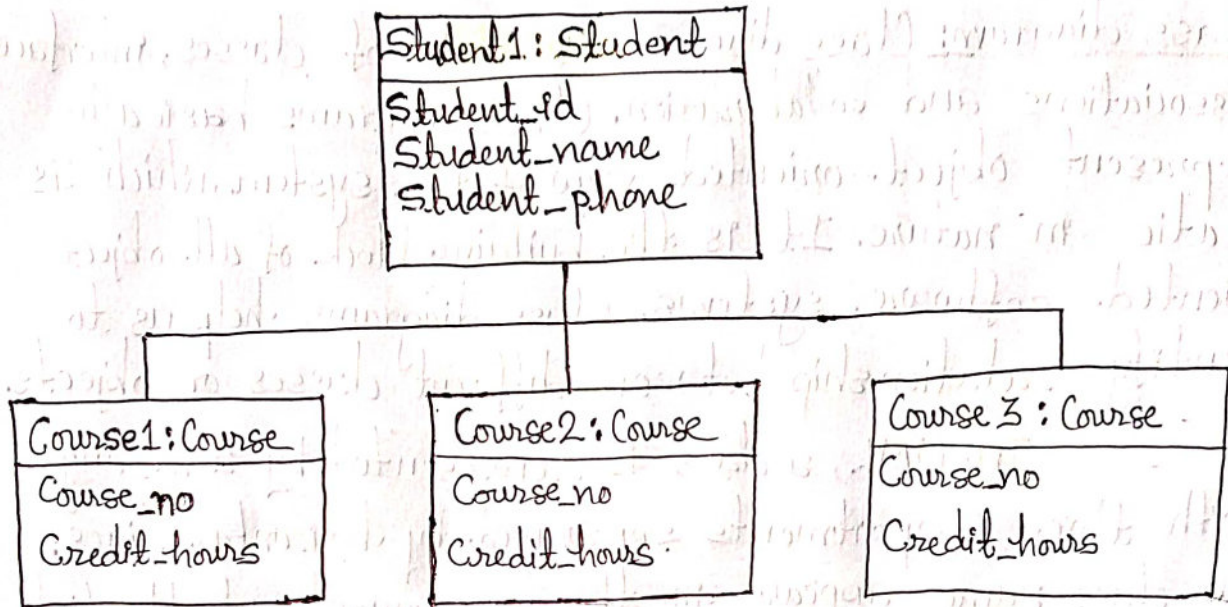 Student1: Student
Student_id
Student_name
Student_phone
Course1: Course
Course_no
Credit_hours
Course2: Course
Course_no
Credit_hours
Course 3: Course
Course_no
Credit_hours